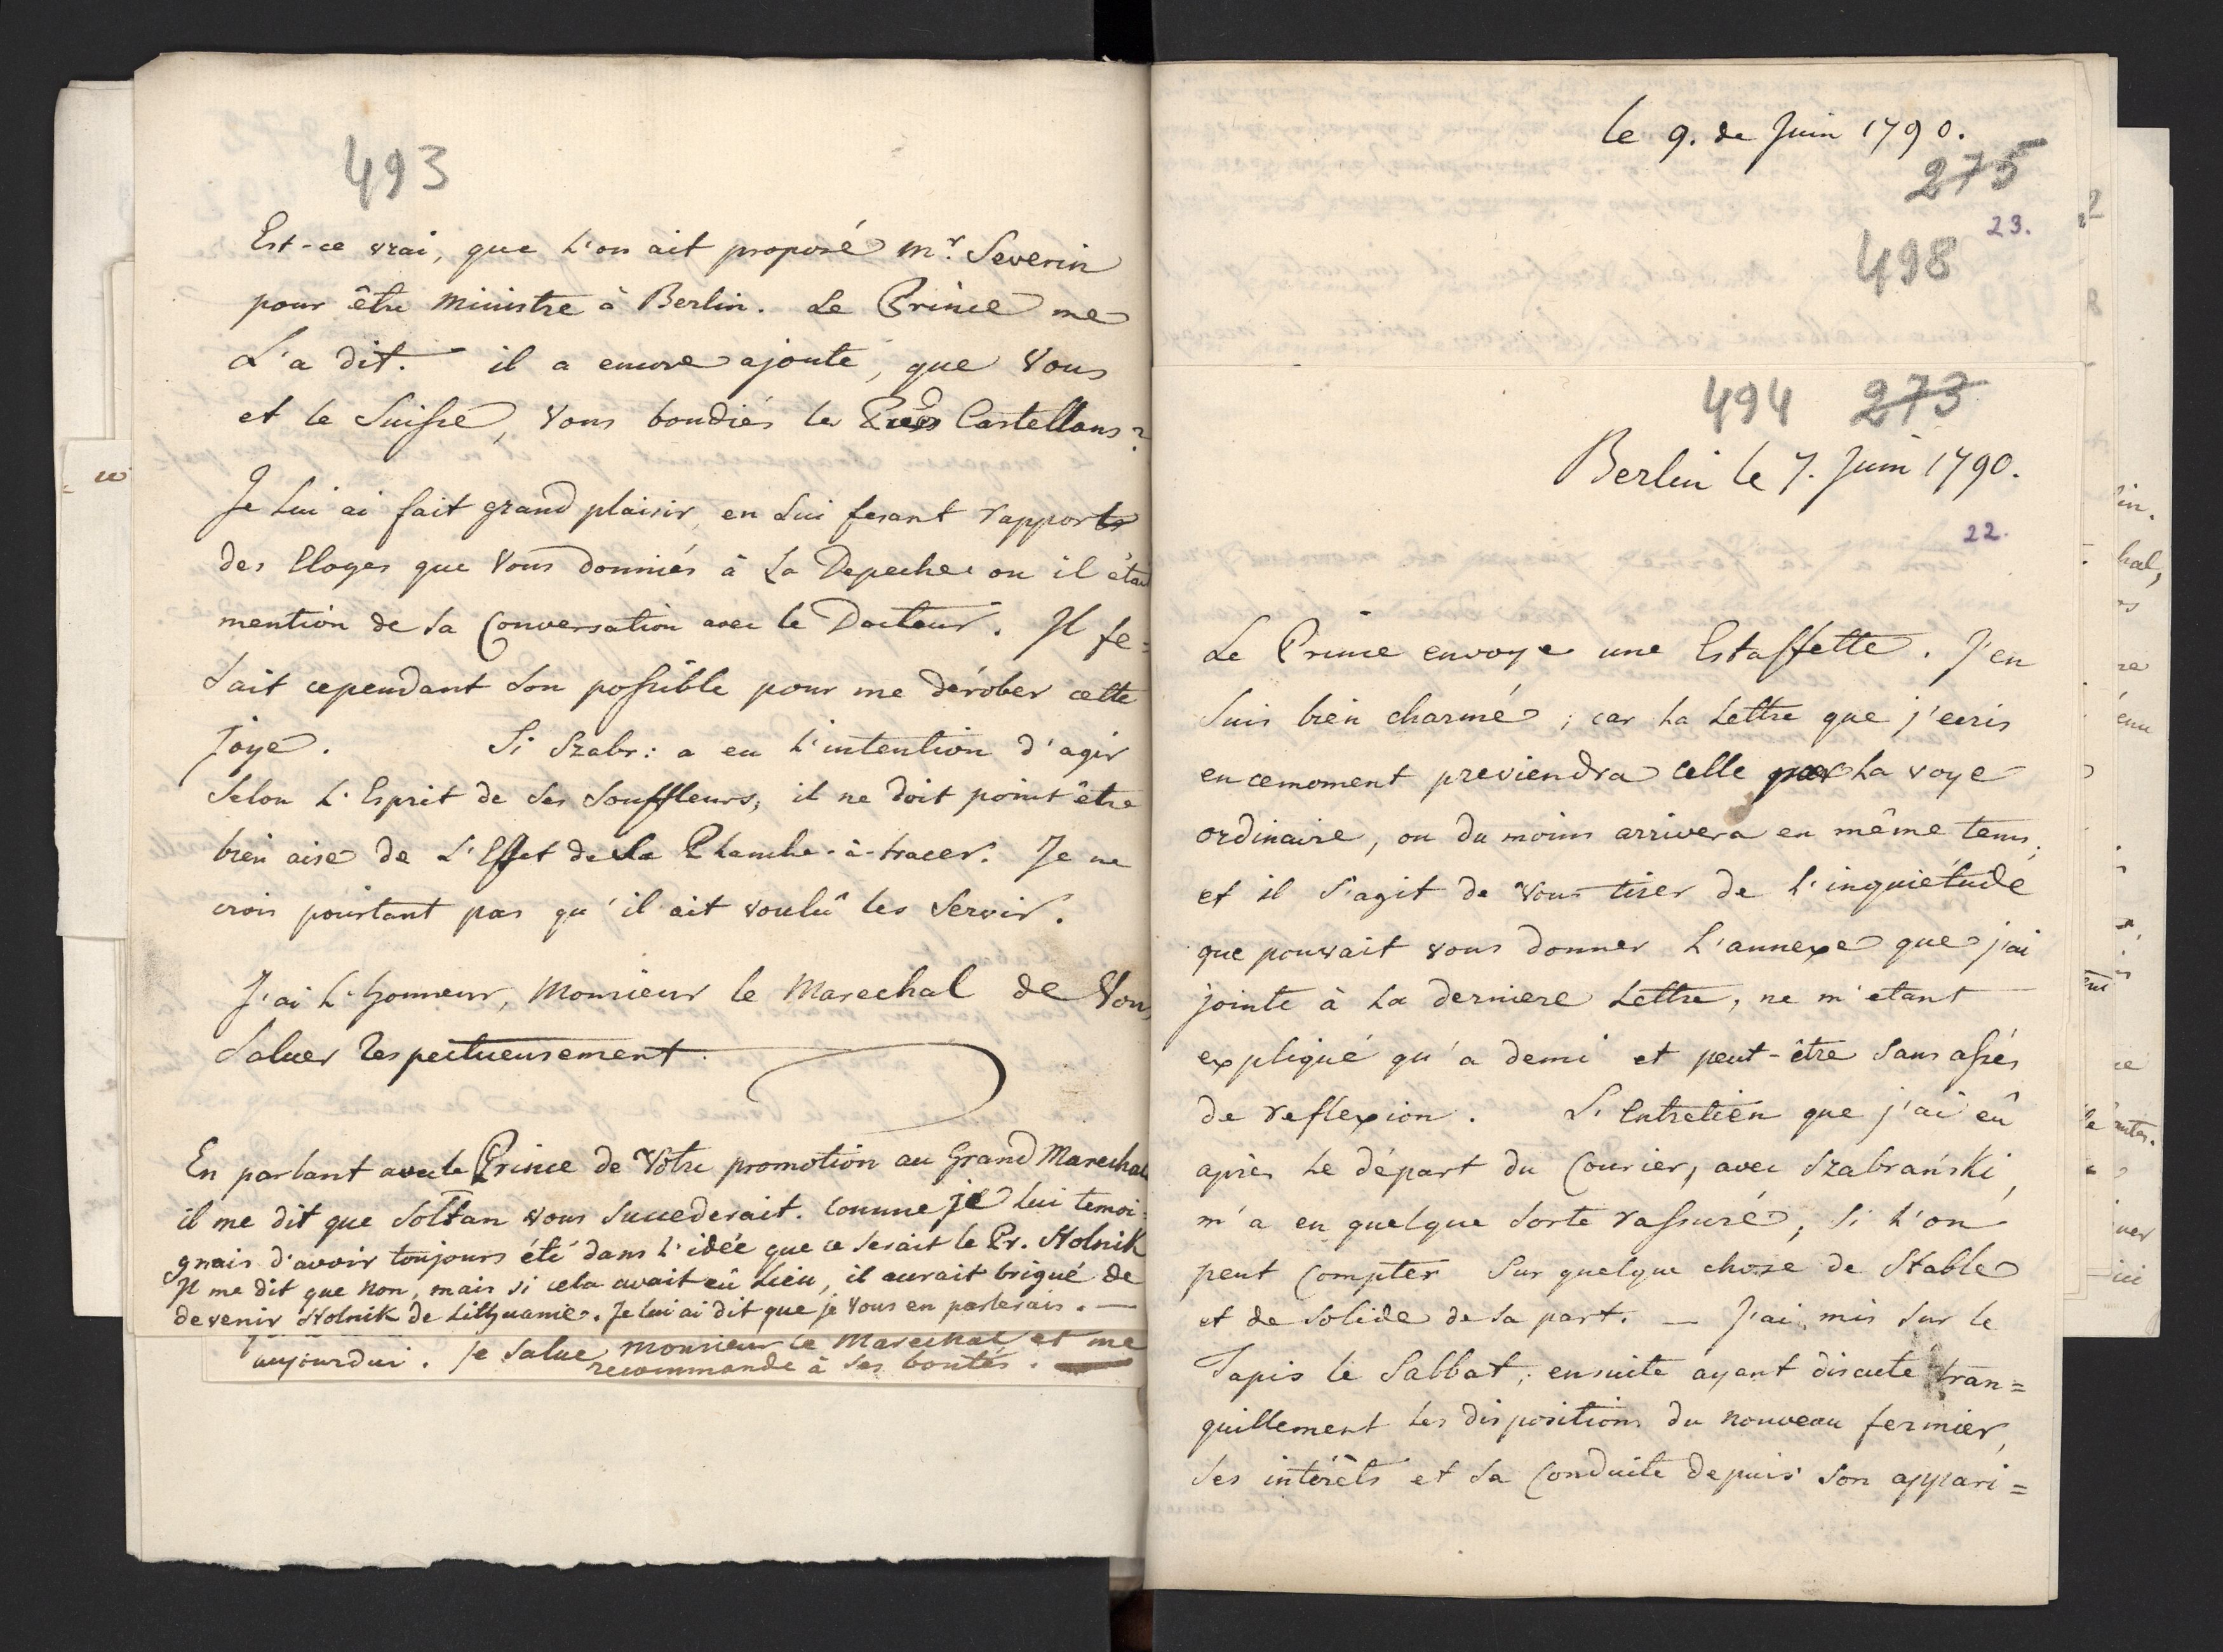 493
Est-ce vrai, que L'on ait proposé Mr. Severin
pour être Ministre à Berlin. Le Prince me
L'a dit. il a encore ajouté, que Vous
et le Suisse, Vous boudiés les Castellans?
Je Lui ai fait grand plaisir, en Lui fesant rapport
des Eloges que Vous donniés à La Depeche ou il était
mention de sa Conversation avec le Docteur. Il fe=
sait cependant son possible pour me dérober cette
joye. Si Szabr: a eu L'intention d'agir
selon L'Esprit de ses Souffleurs, il ne doit point être
bien aise de L'Effet de la Planche-à-tracer. Je ne
crois pourtant pas qu'il ait voulû les servir.
J'ai L'honneur, Monsieur le Marechal de Vous
saluer respectueusement.
En parlant avec le Prince de Votre promotion au Grand Marechal
il me dit que Sołtan vous succederait. Comme je lui temoi=
gnais d'avoir toujours été dans L'idée que ce serait le Pr. Stolnik
Il me dit que Non, mais si cela avait eû Lieu, il aurait brigué de
devenir Stolnik de Lithuanie. Je lui ai dit que je Vous en parlerais. —
aujourdui. Je salue Monsieur le Marechal et me
recommande à ses bontés.
le 9. de Juin 1790.
275
23.
498
494 273
Berlin le 7. Juin 1790.
22.
Le Prince envoye une Estaffette. J'en
suis bien charmé; car La Lettre que j'ecris
en cemoment previendra celle par La voye
ordinaire, ou du moins arrivera en même tems,
et il s'agit de Vous tirer de L'inquiétude
que pouvait vous donner L'annexe que j'ai
jointe à La derniere Lettre, ne m'etant
expliqué qu'a demi et peut-être sans assés
de reflexion. L'Entretien que j'ai eû
après le départ du Courier, avec Szabrański,
m'a en quelque sorte rassuré, si L'on
peut Compter sur quelque chose de Stable
et de solide de sa part. — J'ai mis sur le
Tapis le Sabbat; ensuite ayant discuté tran=
quillement les dispositions du nouveau fermier,
ses intérêts et sa Conduite depuis son appari=